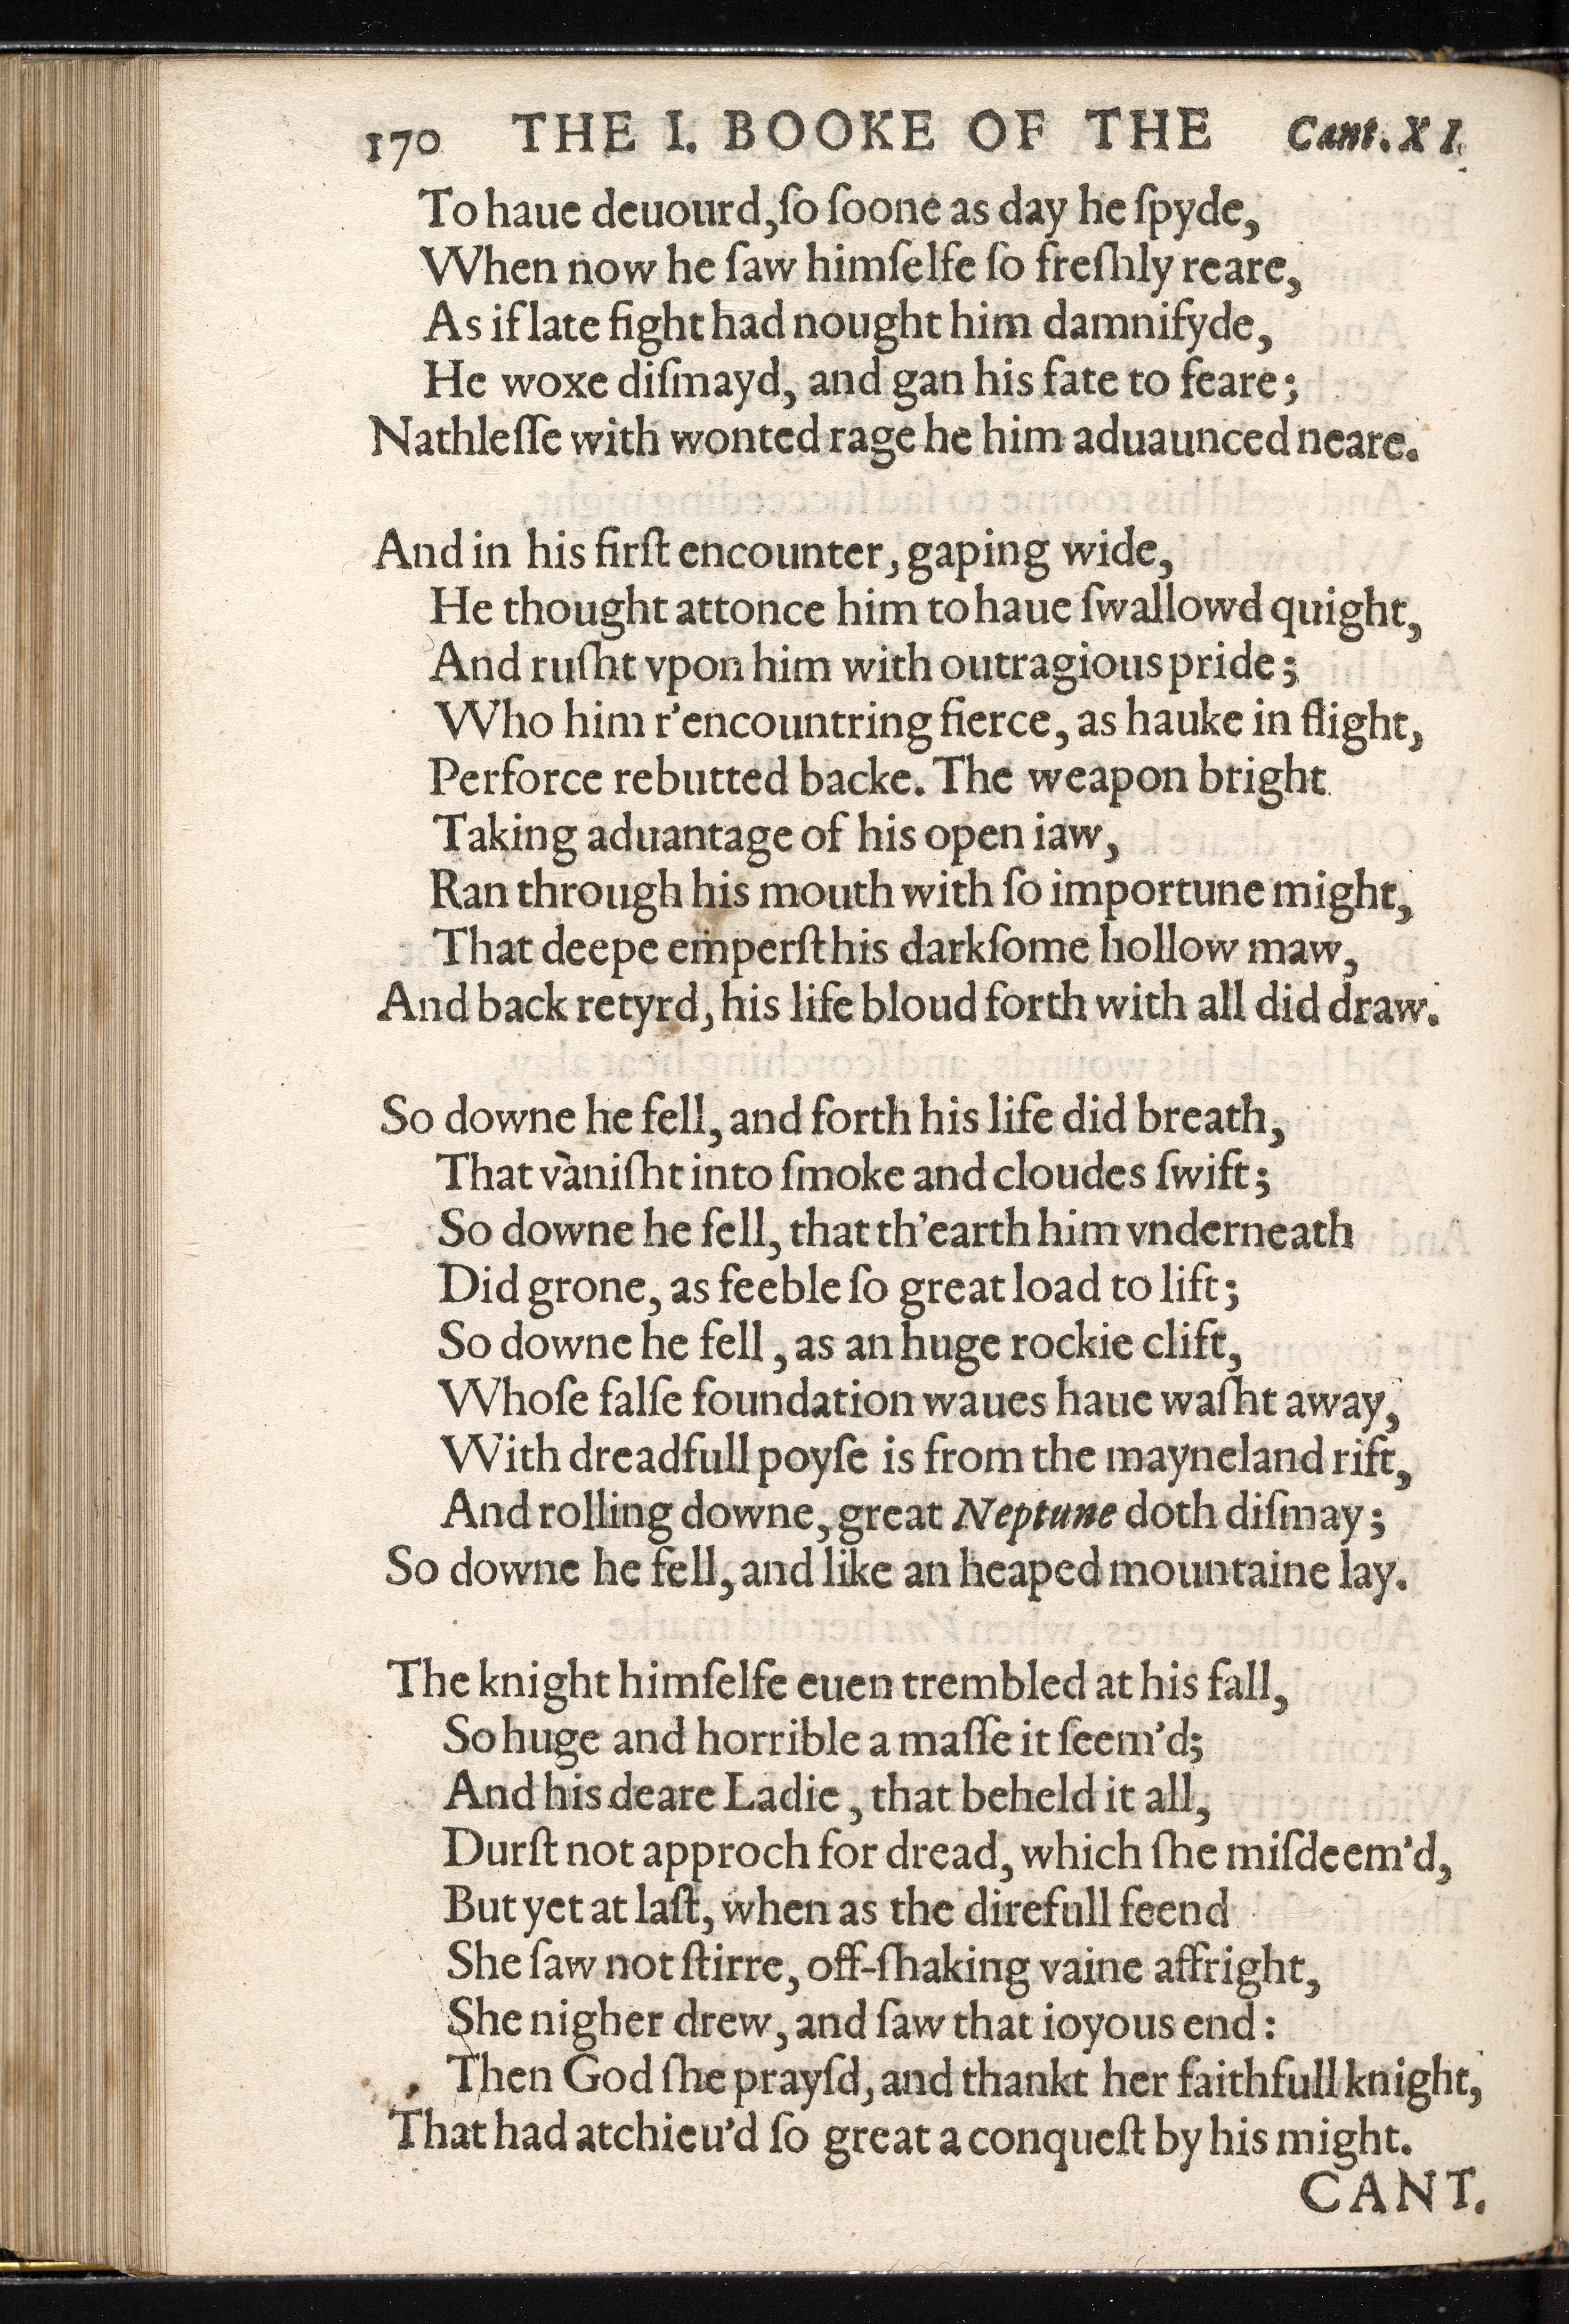 170 THE I. BOOKE OF THE Cant. XI.
To haue deuourd, ſo ſoone as day he ſpyde,
When now he ſaw himſelfe ſo freſhly reare,
As if late fight had nought him damnifyde,
He woxe diſmayd, and gan his fate to feare;
Nathleſſe with wonted rage he him aduaunced neare.
And in his firſt encounter, gaping wide,
He thought attonce him to haue ſwallowd quight,
And ruſht vpon him with outragious pride;
Who him r'encountring fierce, as hauke in flight,
Perforce rebutted backe. The weapon bright
Taking aduantage of his open iaw,
Ran through his mouth with ſo importune might,
That deepe emperſt his darkſome hollow maw,
And back retyrd, his life bloud forth with all did draw.
So downe he fell, and forth his life did breath,
That vaniſht into ſmoke and cloudes ſwift;
So downe he fell, that th'earth him vnderneath
Did grone, as feeble ſo great load to lift;
So downe he fell, as an huge rockie clift,
Whoſe falſe foundation waues haue waſht away,
With dreadfull poyſe is from the mayneland rift,
And rolling downe, great Neptune doth diſmay;
So downe he fell, and like an heaped mountaine lay.
The knight himſelfe euen trembled at his fall,
So huge and horrible a maſſe it ſeem'd;
And his deare Ladie, that beheld it all,
Durſt not approch for dread, which ſhe miſdeem'd,
But yet at laſt, when as the direfull feend
She ſaw not ſtirre, off-ſhaking vaine affright,
She nigher drew, and ſaw that ioyous end:
Then God ſhe prayſd, and thankt her faithfull knight,
That had atchieu'd ſo great a conqueſt by his might.
CANT.